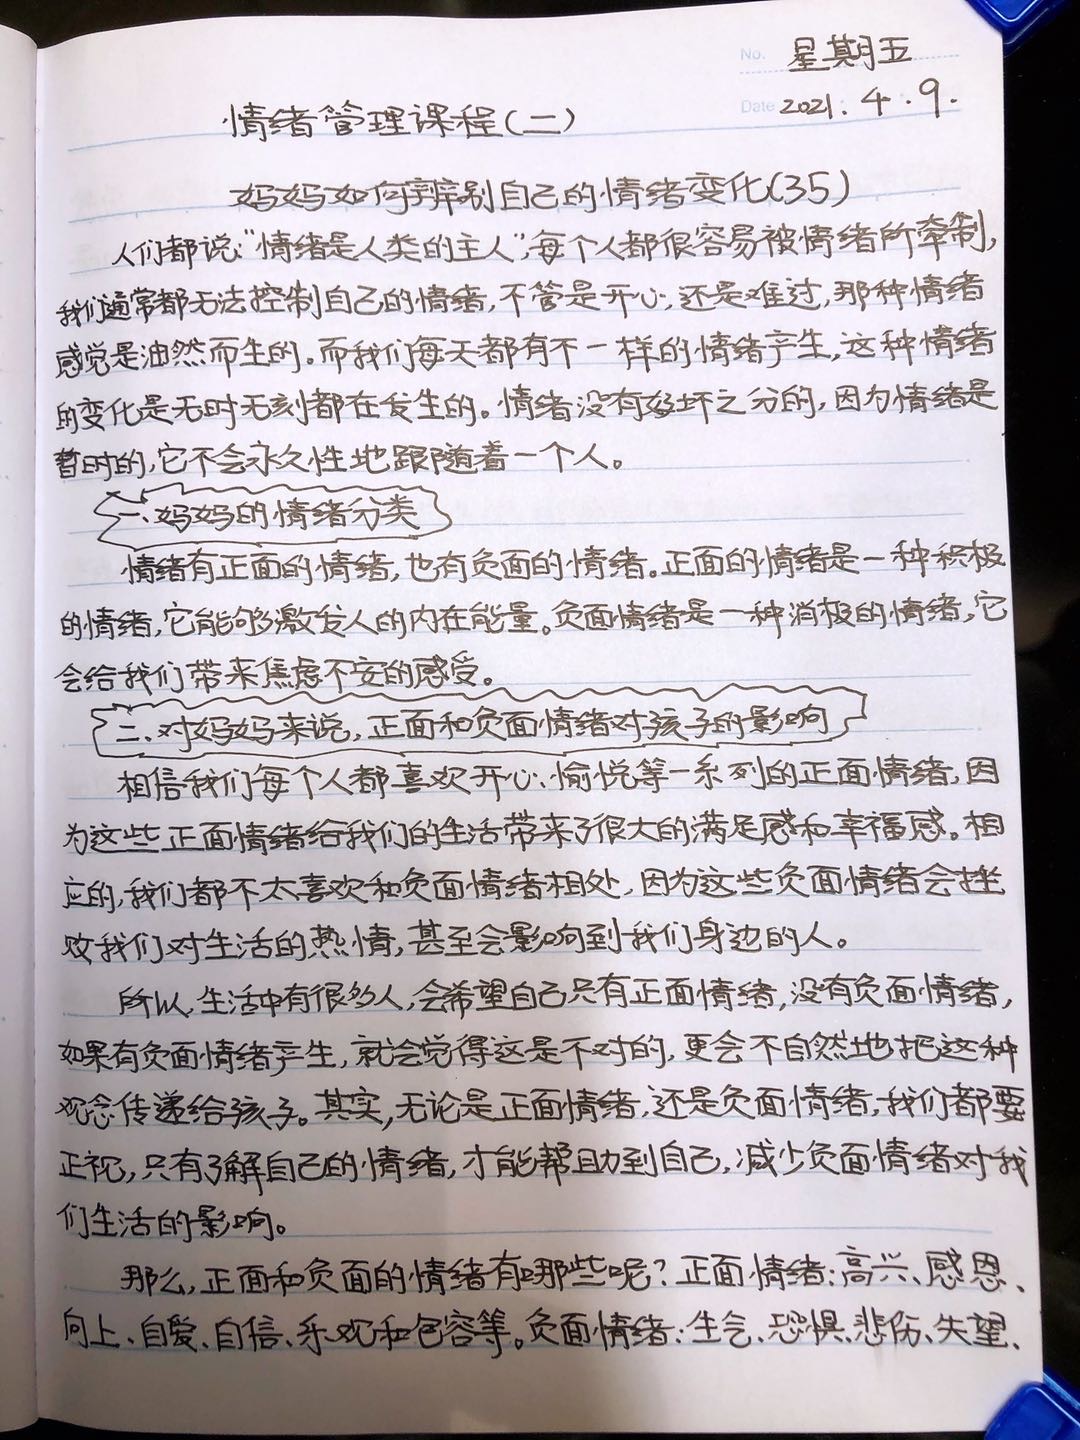 No. 星期五
Date 2021.4.9.
情绪管理课程(二)
妈妈如何辨别自己的情绪变化(35)
人们都说:“情绪是人类的主人”,每个人都很容易被情绪所牵制,
我们通常都无法控制自己的情绪,不管是开心,还是难过,那种情绪
感觉是油然而生的。而我们每天都有不一样的情绪产生,这种情绪
的变化是无时无刻都在发生的。情绪没有好坏之分的,因为情绪是
暂时的,它不会永久性地跟随着一个人。
一、妈妈的情绪分类
情绪有正面的情绪,也有负面的情绪。正面的情绪是一种积极
的情绪,它能够激发人的内在能量。负面情绪是一种消极的情绪,它
会给我们带来焦虑不安的感受。
二、对妈妈来说,正面和负面情绪对孩子的影响
相信我们每个人都喜欢开心、愉悦等一系列的正面情绪,因
为这些正面情绪给我们的生活带来了很大的满足感和幸福感。相
应的,我们都不太喜欢和负面情绪相处,因为这些负面情绪会挫
败我们对生活的热情,甚至会影响到我们身边的人。
所以,生活中有很多人,会希望自己只有正面情绪,没有负面情绪,
如果有负面情绪产生,就会觉得这是不对的,更会不自然地把这种
观念传递给孩子。其实,无论是正面情绪,还是负面情绪,我们都要
正视,只有了解自己的情绪,才能帮助到自己,减少负面情绪对我
们生活的影响。
那么,正面和负面的情绪有哪些呢?正面情绪:高兴、感恩、
向上、自爱、自信、乐观和包容等。负面情绪:生气、恐惧、悲伤、失望、